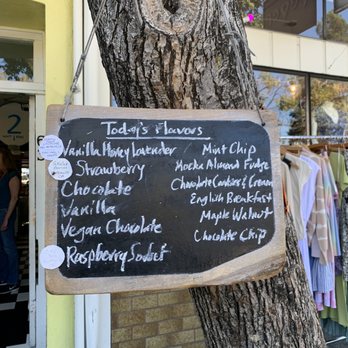 Today's Flavors
Vanilla Honey Lavender
Strawberry
Chocolate
Vanilla
Vegan Chocolate
Raspberry Sorbet
Mint Chip
Mocha Almond Fudge
Chocolate Cookies & Cream
English Breakfast
Maple Walnut
Chocolate Chip
2